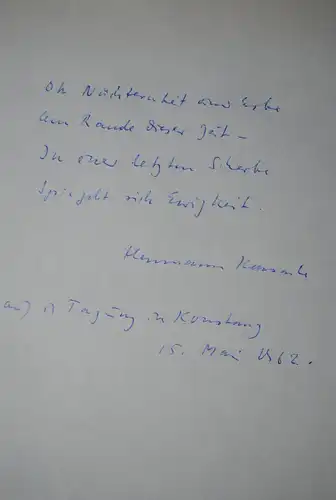 Oh Nüchternheit und Erbe
am Rande dieser Zeit –
In einer letzten Scherbe
Spiegelt sich Ewigkeit.
Hermann
auf Tagung in Konstanz
15. Mai 1962.